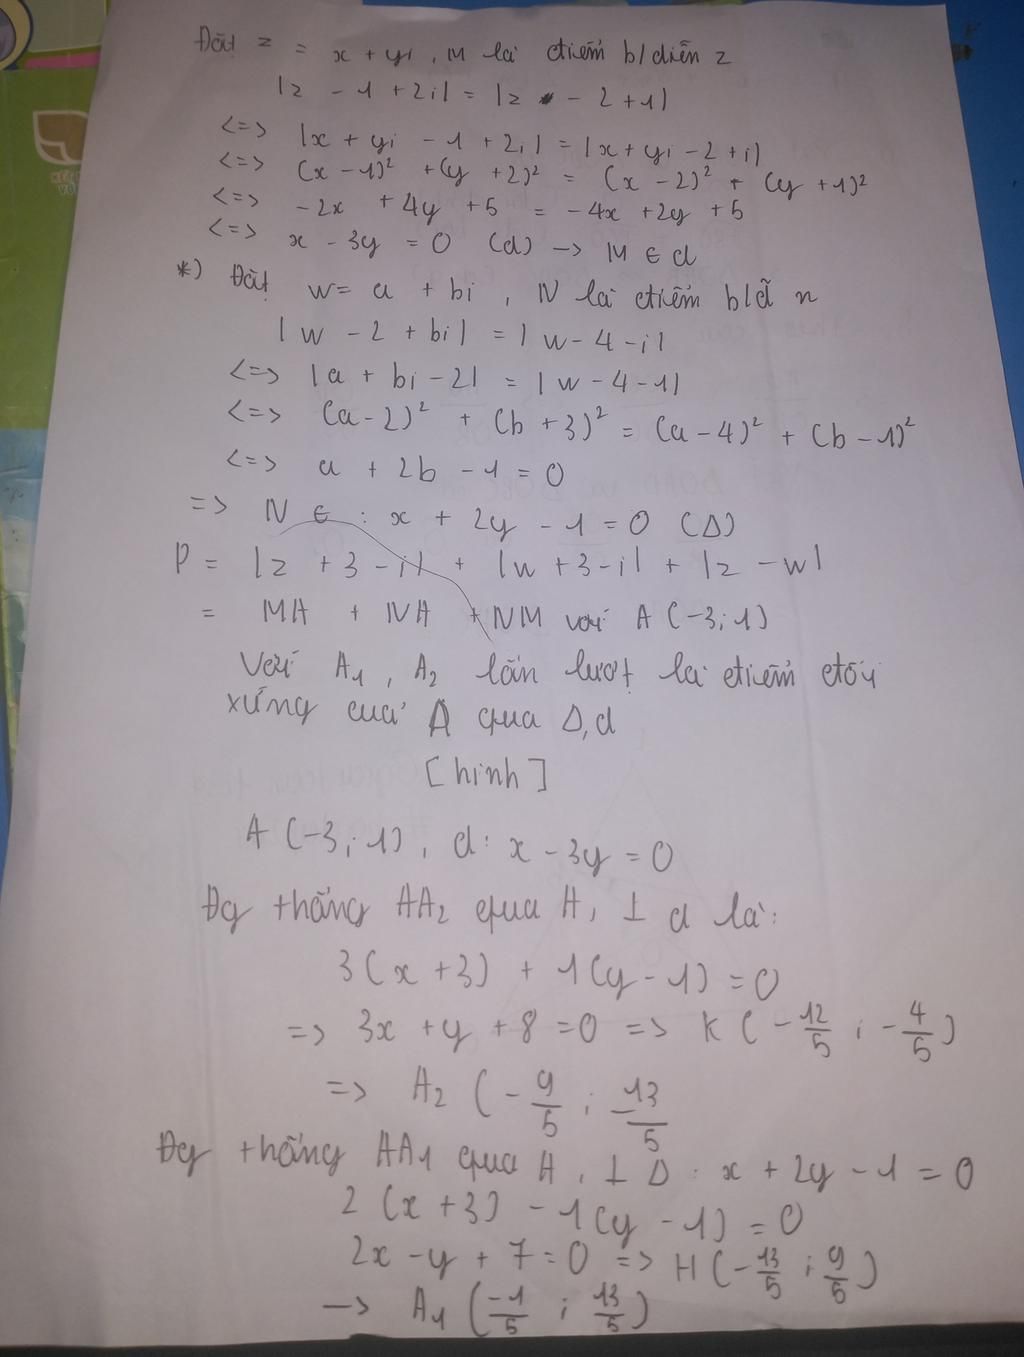 Đặt z = x + yi, M là điểm b/diễn z
|z - 1 + 2i| = |z - 2 + 1|
<=> |x + yi - 1 + 2i| = |x + yi - 2 + i|
<=> (x - 1)² + (y + 2)² = (x - 2)² + (y + 1)²
<=> -2x + 4y + 5 = -4x + 2y + 5
<=> x - 3y = 0 (d) -> M ∈ d
*) Đặt w = a + bi, N là điểm b/d n
|w - 2 + bi| = |w - 4 - i|
<=> |a + bi - 2| = |w - 4 - 1|
<=> (a - 2)² + (b + 3)² = (a - 4)² + (b - 1)²
<=> a + 2b - 1 = 0
=> N ∈ : x + 2y - 1 = 0 (Δ)
P = |z + 3 - i| + |w + 3 - i| + |z - w|
= MA + NA + NM với A (-3; 1)
Với A₁, A₂ lần lượt là điểm đối
xứng của A qua Δ, d
[hình]
A (-3; 1), d: x - 3y = 0
Đg thẳng AA₂ qua A, ⊥ d là:
3(x + 3) + 1(y - 1) = 0
=> 3x + y + 8 = 0 => K (-12/5 ; -4/5)
=> A₂ (-9/5 ; -13/5
Đg thẳng AA₁ qua A, ⊥ Δ: x + 2y - 1 = 0
2 (x + 3) - 1(y - 1) = 0
2x - y + 7 = 0 => H (-13/5 ; 9/5)
-> A₁ (-1/5 ; 13/5)